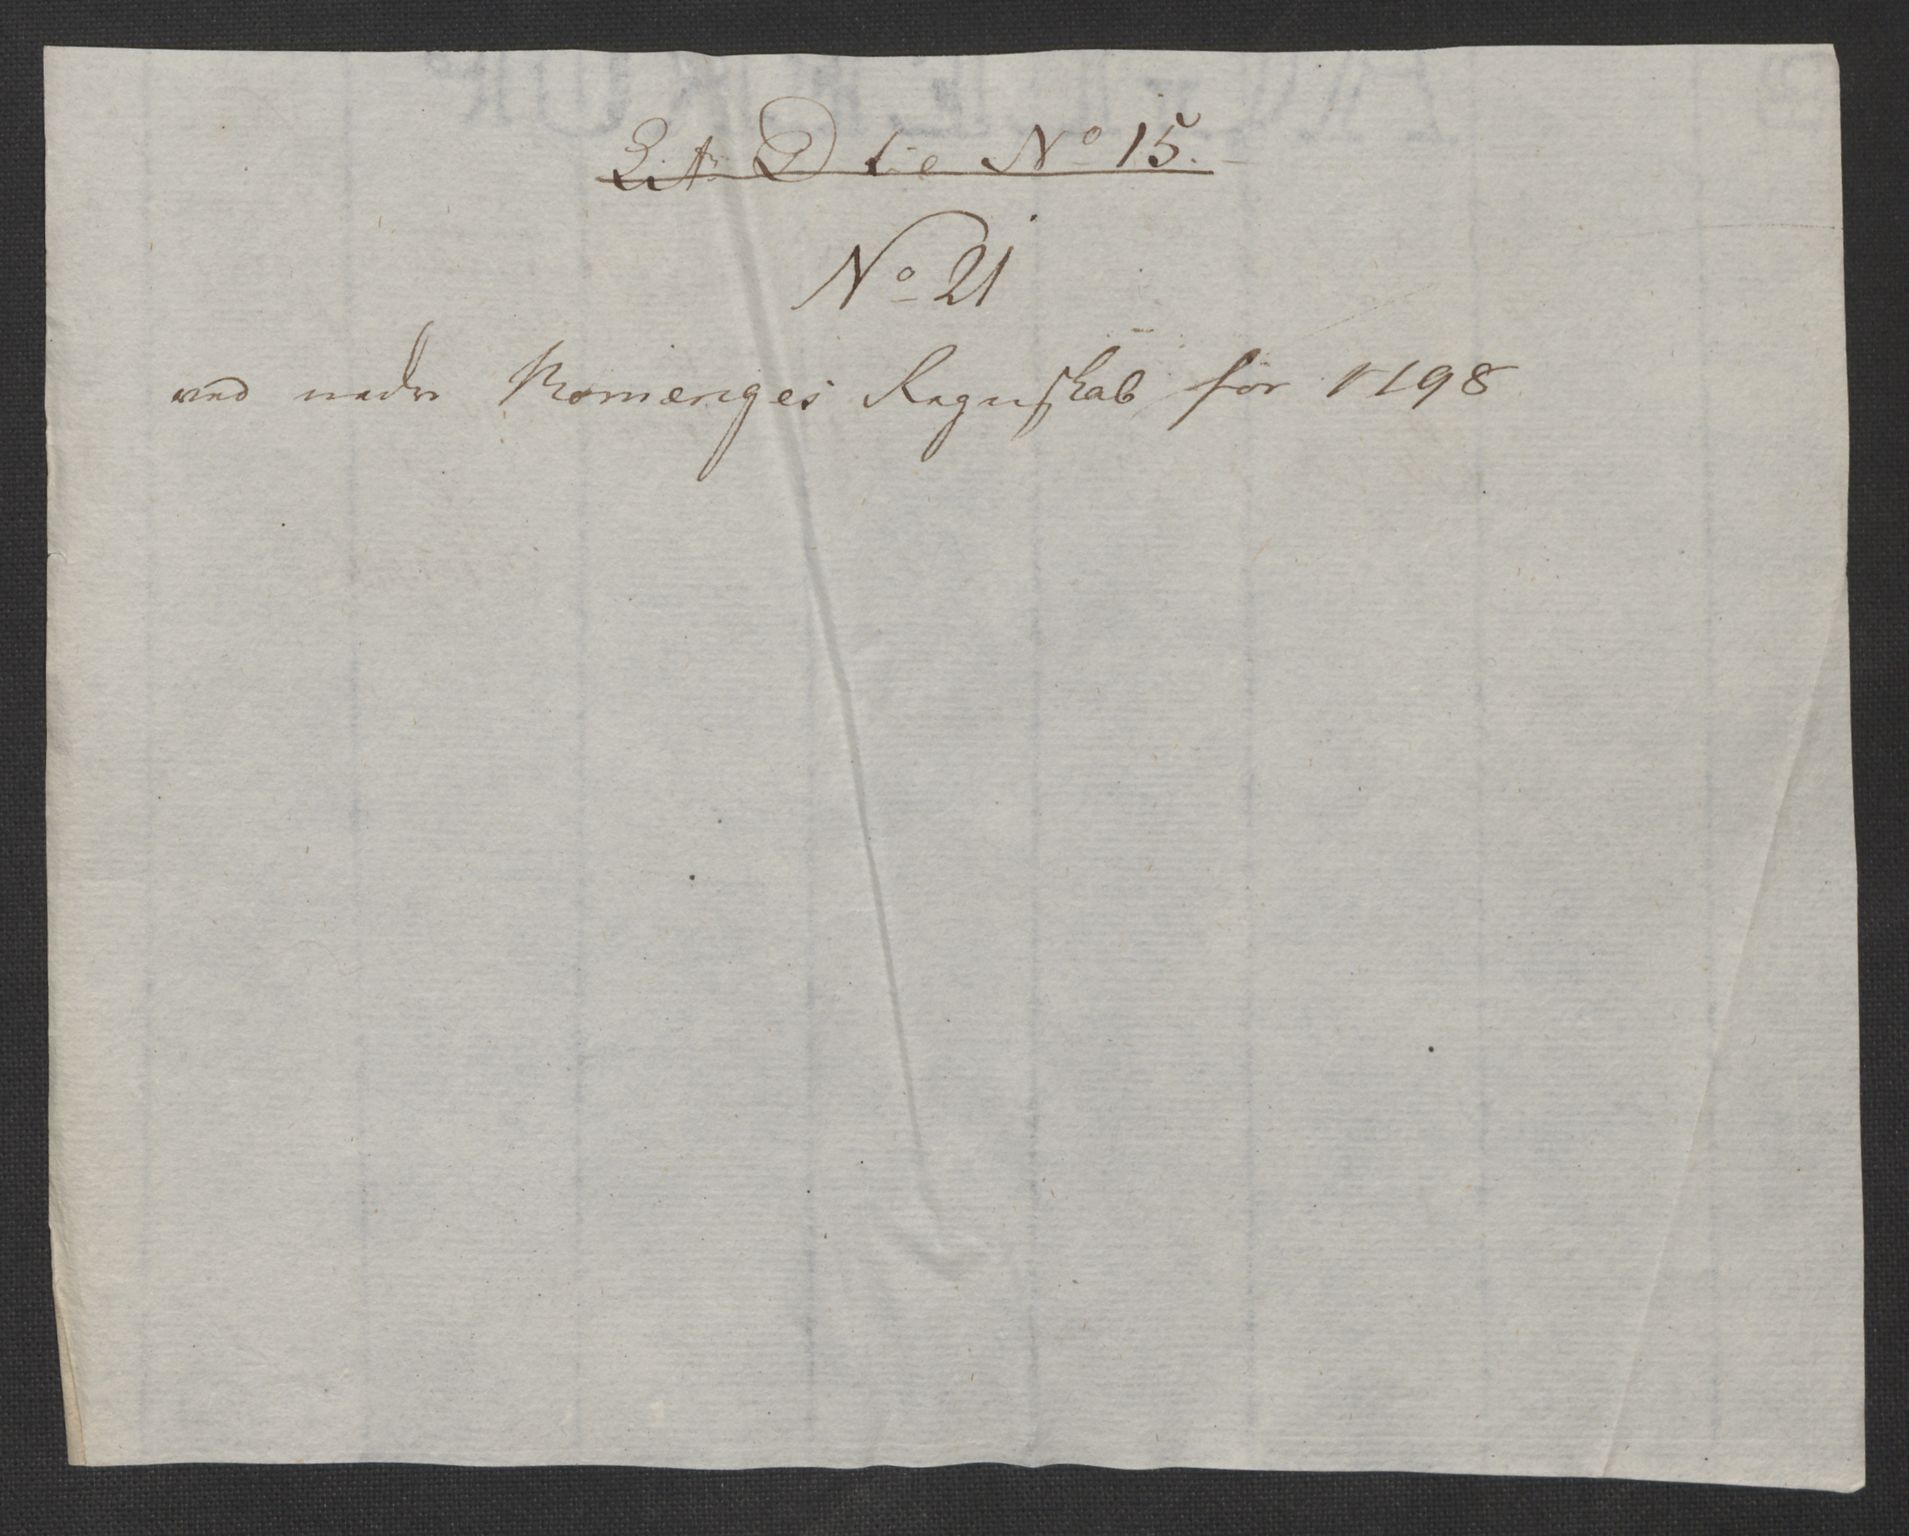 Lit. D tie No 15.
No 21
ved neder Romeriges Regnskab for 1798